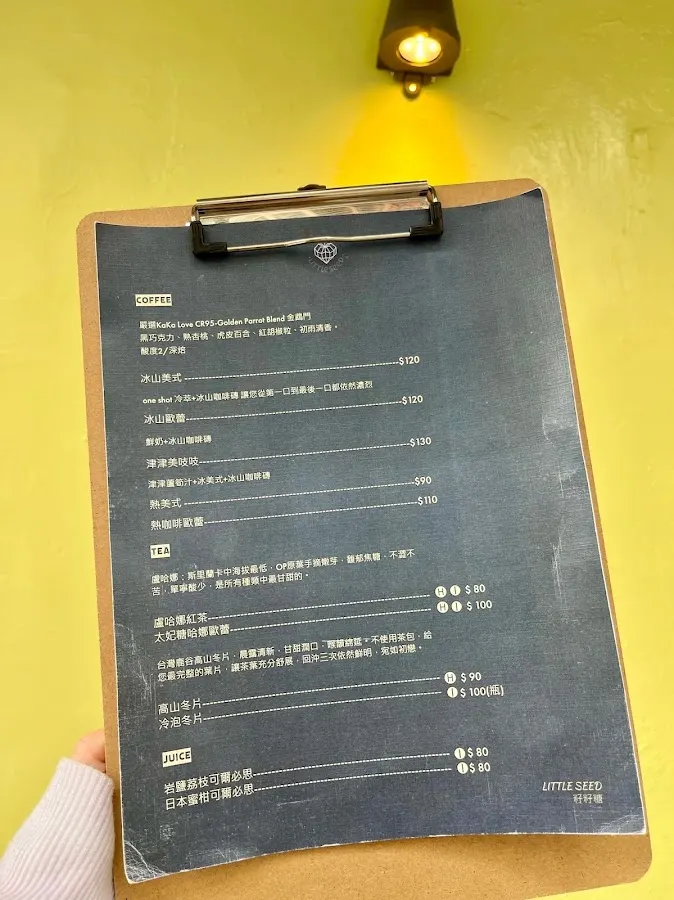 LITTLE SEED
COFFEE
嚴選KaKa Love CR95-Golden Parrot Blend 金鸚鵡
黑巧克力、熱杏桃、虎皮百合、紅胡椒粒、初雨清香。
酸度2/深焙
冰山美式 $120
one shot 冷萃+冰山咖啡磚 讓您從第一口到最後一口都依然濃烈
冰山歐蕾 $120
鮮奶+冰山咖啡磚
津津美吱吱 $130
津津蘆筍汁+冰美式+冰山咖啡磚
熱美式 $90
熱咖啡歐蕾 $110
TEA
盧哈娜：斯里蘭卡中海拔最低，OP原葉手摘嫩芽，馥郁焦糖，不澀不
苦，單寧酸少，是所有種類中最甘甜的。
盧哈娜紅茶 H I $80
太妃糖哈娜歐蕾 H I $100
台灣鹿谷高山冬片，晨露清新、甘甜潤口、喉韻綿延。不使用茶包，給
您最完整的葉片，讓茶葉充分舒展，回沖三次依然鮮明，宛如初戀。
高山冬片 H $90
冷泡冬片 I $100(瓶)
JUICE
岩鹽荔枝可爾必思 I $80
日本蜜柑可爾必思 I $80
LITTLE SEED
籽籽糖